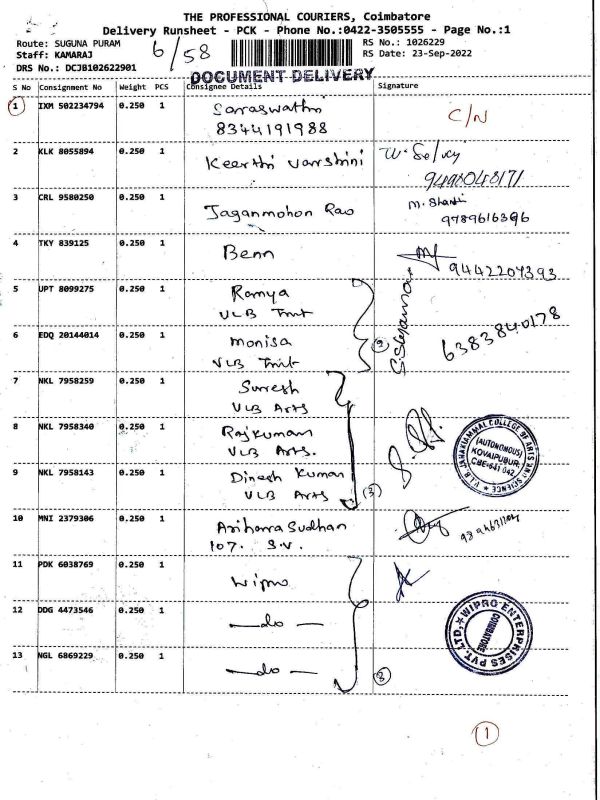 THE PROFESSIONAL COURIERS, Coimbatore
Delivery Runsheet - PCK - Phone No.:0422-3505555 - Page No.:1
Route: SUGUNA PURAM
Staff: KAMARAJ
DRS No.: DCJB102622901
6/58
RS No.: 1026229
RS Date: 23-Sep-2022
DOCUMENT DELIVERY
S No Consignment No Weight PCS Consignee Details Signature
1 IXM 502234794 0.250 1 Saraswathi C/N
8344191988
2 KLK 8055894 0.250 1 Keerthi Varrshini
9498048171
3 CRL 9580250 0.250 1 Jaganmohon Rao M. Shanthi
9789616396
4 TKY 839125 0.250 1 Benn
9442207393
5 UPT 8099275 0.250 1 Ramya
VLB
6 EDQ 20144014 0.250 1 Monisa 6383840178
VLB
7 NKL 7958259 0.250 1 Suresh
VLB Arts
8 NKL 7958340 0.250 1 Rajkumar
VLB Arts.
9 NKL 7958143 0.250 1 Dinesh Kumar
VLB Arts (3)
V.L.B. JANAKIAMMAL COLLEGE OF ARTS AND SCIENCE
(AUTONOMOUS)
KOVAIPUDUR,
CBE-641 042.
10 MNI 2379306 0.250 1 Ariharra Sudhan
107. S.V.
11 PDK 6038769 0.250 1 Wipro
12 DDG 4473546 0.250 1 — do —
13 NGL 6869229 0.250 1 — do —
WIPRO ENTERPRISES PVT. LTD.
COIMBATORE
1